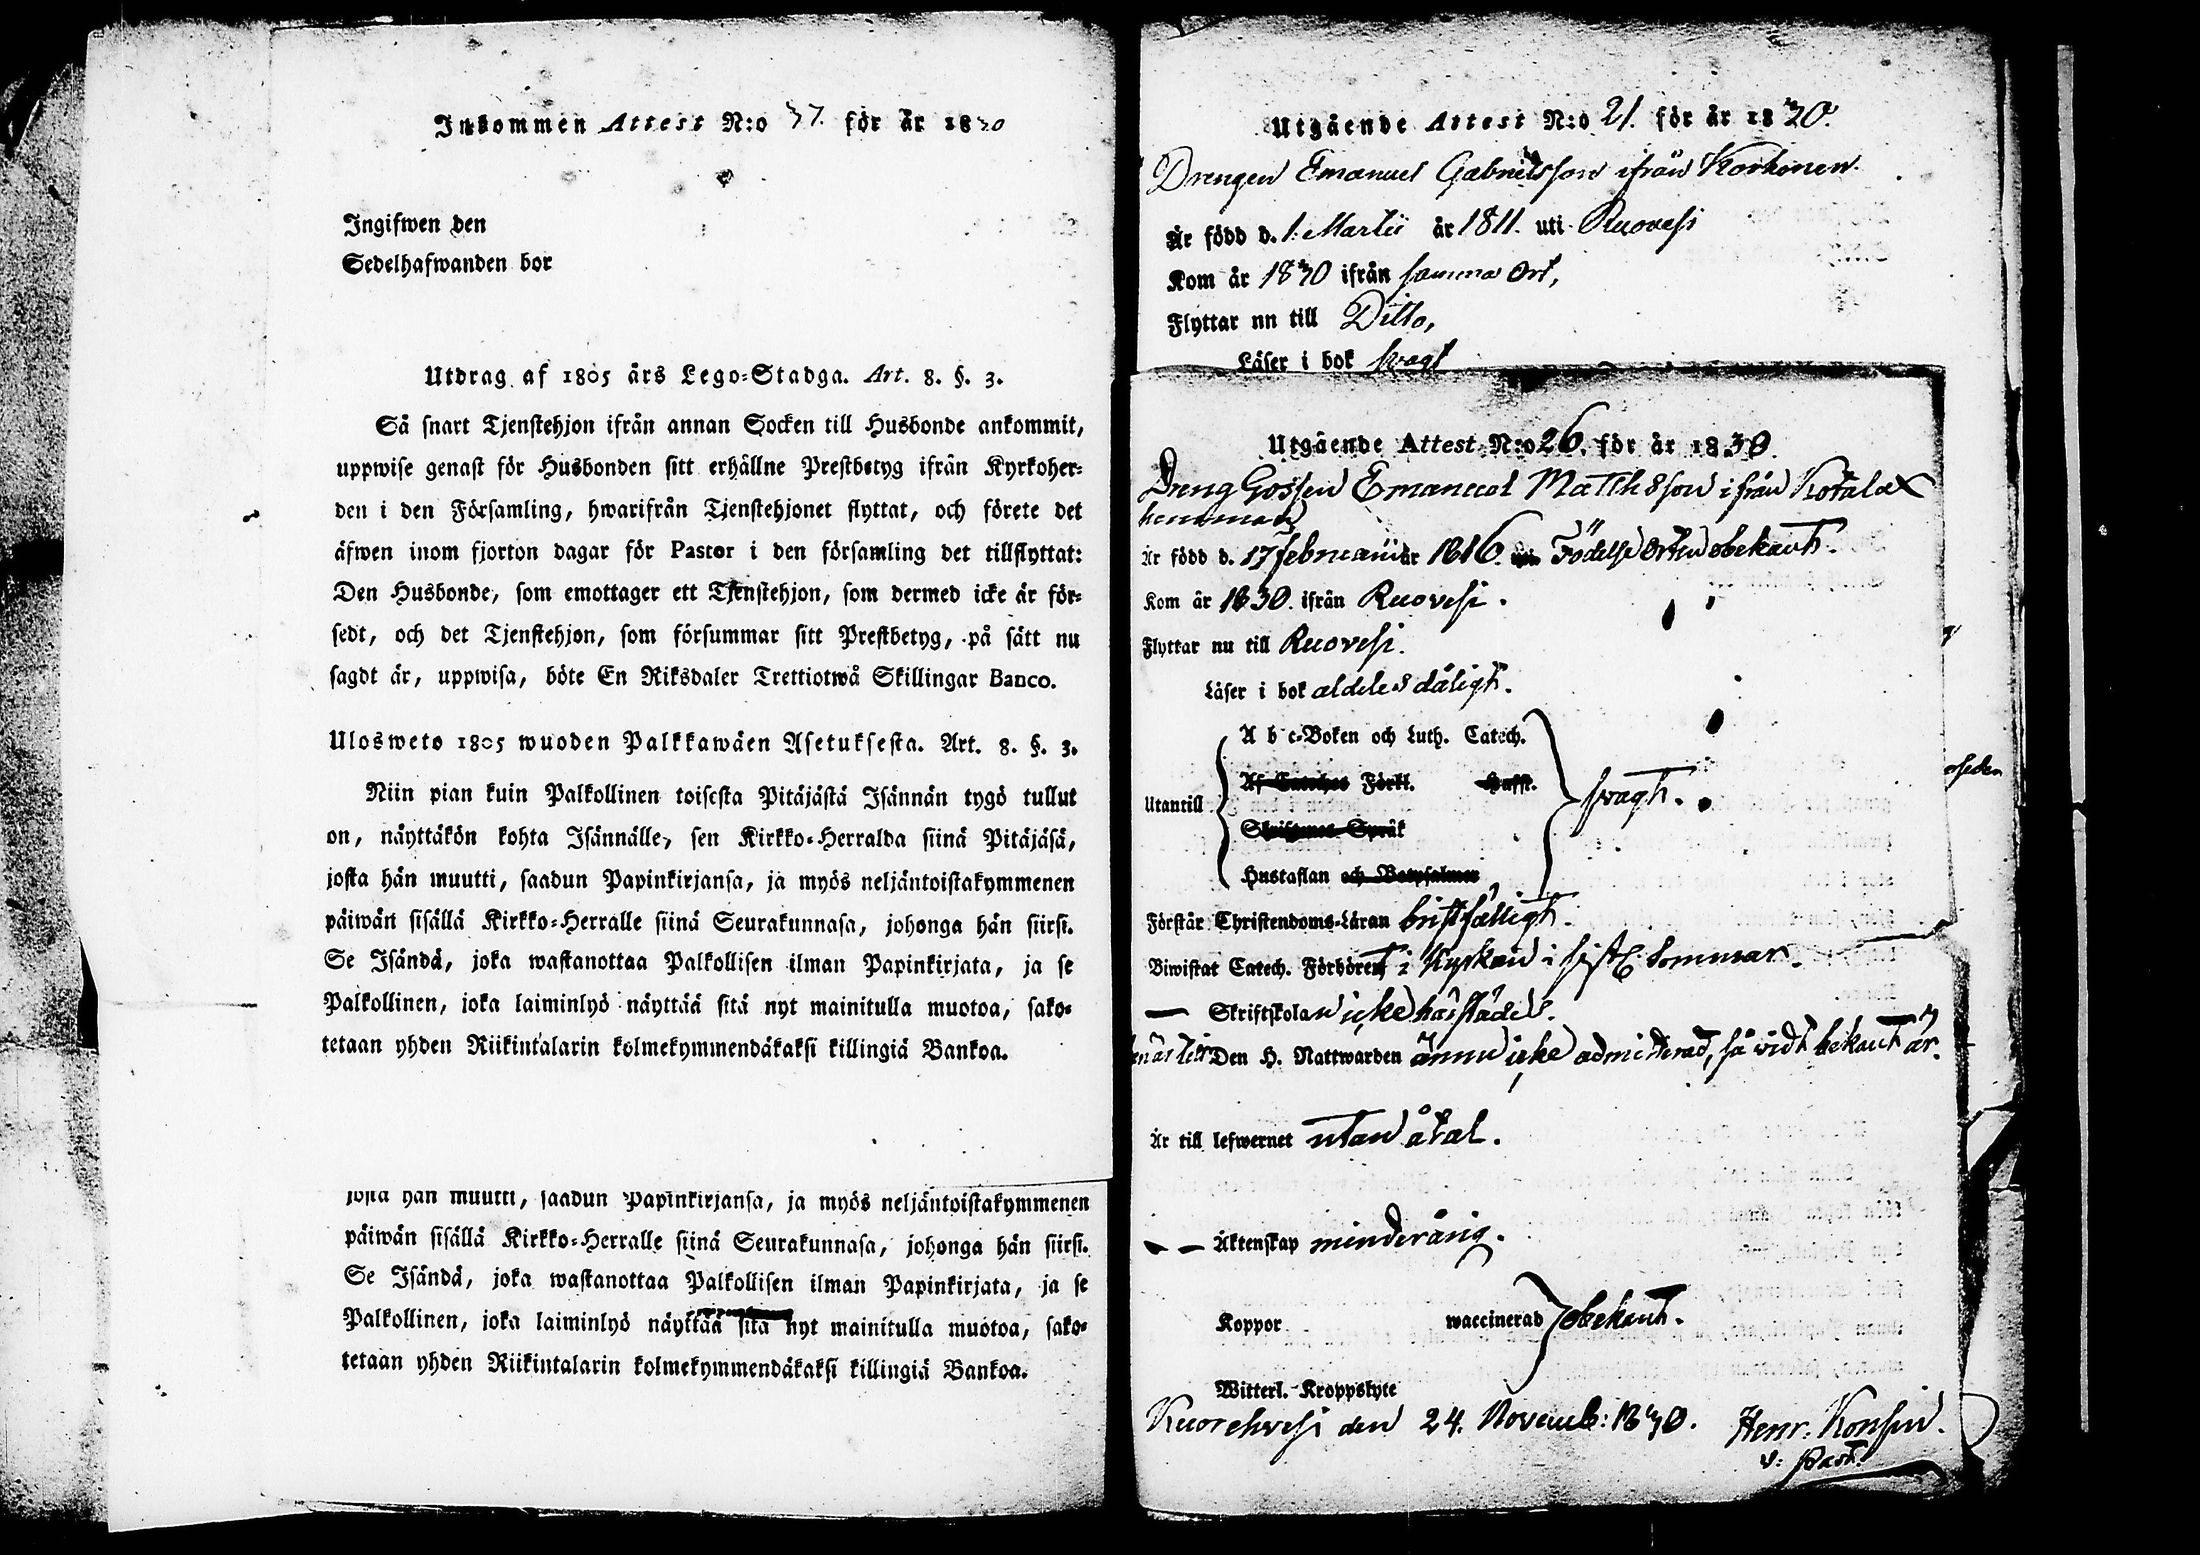 Inkommen Attest N:o 37. för år 1830
Ingifwen den
Sedelhafwanden bor
Utdrag af 1805 års Lego-Stadga. Art. 8. §. 3.
Så snart Tjenstehjon ifrån annan Socken till Husbonde ankommit,
uppwise genast för Husbonden sitt erhållne Prestbetyg ifrån Kyrkoher-
den i den Församling, hwarifrån Tjenstehjonet flyttat, och förete det
äfwen inom fjorton dagar för Pastor i den församling det tillflyttat:
Den Husbonde, som emottager ett Tjenstehjon, som dermed icke är för-
sedt, och det Tjenstehjon, som försummar sitt Prestbetyg, på sätt nu
sagdt är, uppwisa, böte En Riksdaler Trettiotwå Skillingar Banco.
Ulosweto 1805 wuoden Palkkawäen Asetuksesta. Art. 8. §. 3.
Niin pian kuin Palkollinen toisesta Pitäjästä Isännän tygö tullut
on, näyttäkön kohta Isännälle, sen Kirkko-Herralda siinä Pitäjäsä,
josta hän muutti, saadun Papinkirjansa, ja myös neljäntoistakymmenen
päiwän sisällä Kirkko-Herralle siinä Seurakunnasa, johonga hän siirsi.
Se Isändä, joka wastanottaa Palkollisen ilman Papinkirjata, ja se
Palkollinen, joka laiminlyö näyttää sitä nyt mainitulla muotoa, sako-
tetaan yhden Riikintalarin kolmekymmendäkaksi killingiä Bankoa.
josta hän muutti, saadun Papinkirjansa, ja myös neljäntoistakymmenen
päiwän sisällä Kirkko-Herralle siinä Seurakunnasa, johonga hän siirsi.
Se Isändä, joka wastanottaa Palkollisen ilman Papinkirjata, ja se
Palkollinen, joka laiminlyö näyttää sitä nyt mainitulla muotoa, sako-
tetaan yhden Riikintalarin kolmekymmendäkaksi killingiä Bankoa.
Utgående Attest N:o 21. för år 1830.
Drengen Emanuel Gabrielsson ifrån Korhonen.
Är född d. 1. Martii år 1811. uti Ruovesi
Kom år 1830 ifrån samma Ort,
Flyttar nu till Ditto,
Läser i bok svagt
Utgående Attest N:o 26. för år 1830.
Dreng Gossen Emanuel Matthsson ifrån Kotala
hemman
Är född d. 17 februarii år 1816. uti Födelse Orten obekant.
Kom år 1830. ifrån Ruovesi.
Flyttar nu till Ruovesi.
Läser i bok aldeles dåligt.
Utantill
A b c-Boken och Luth. Catech.
Af Cateches Förkl. Hufst.
Skriftenes Språk
Hustaflan och Botpsalmer
svagt.
Förstår Christendoms-Läran bristfälligt.
Biwistat Catech. Förhöret i Kyrkan i sistl. Sommar.
— Skriftskolan icke härstädes.
Den H. Nattwarden ännu icke admitterad, så vidt bekant är.
Är till lefwernet utan åtal.
— Äktenskap minderårig.
Koppor waccinerad obekant.
Witterl. Kroppslyte
Kuorehvesi den 24. Novemb: 1830. Henr. Konsin.
v: Past.